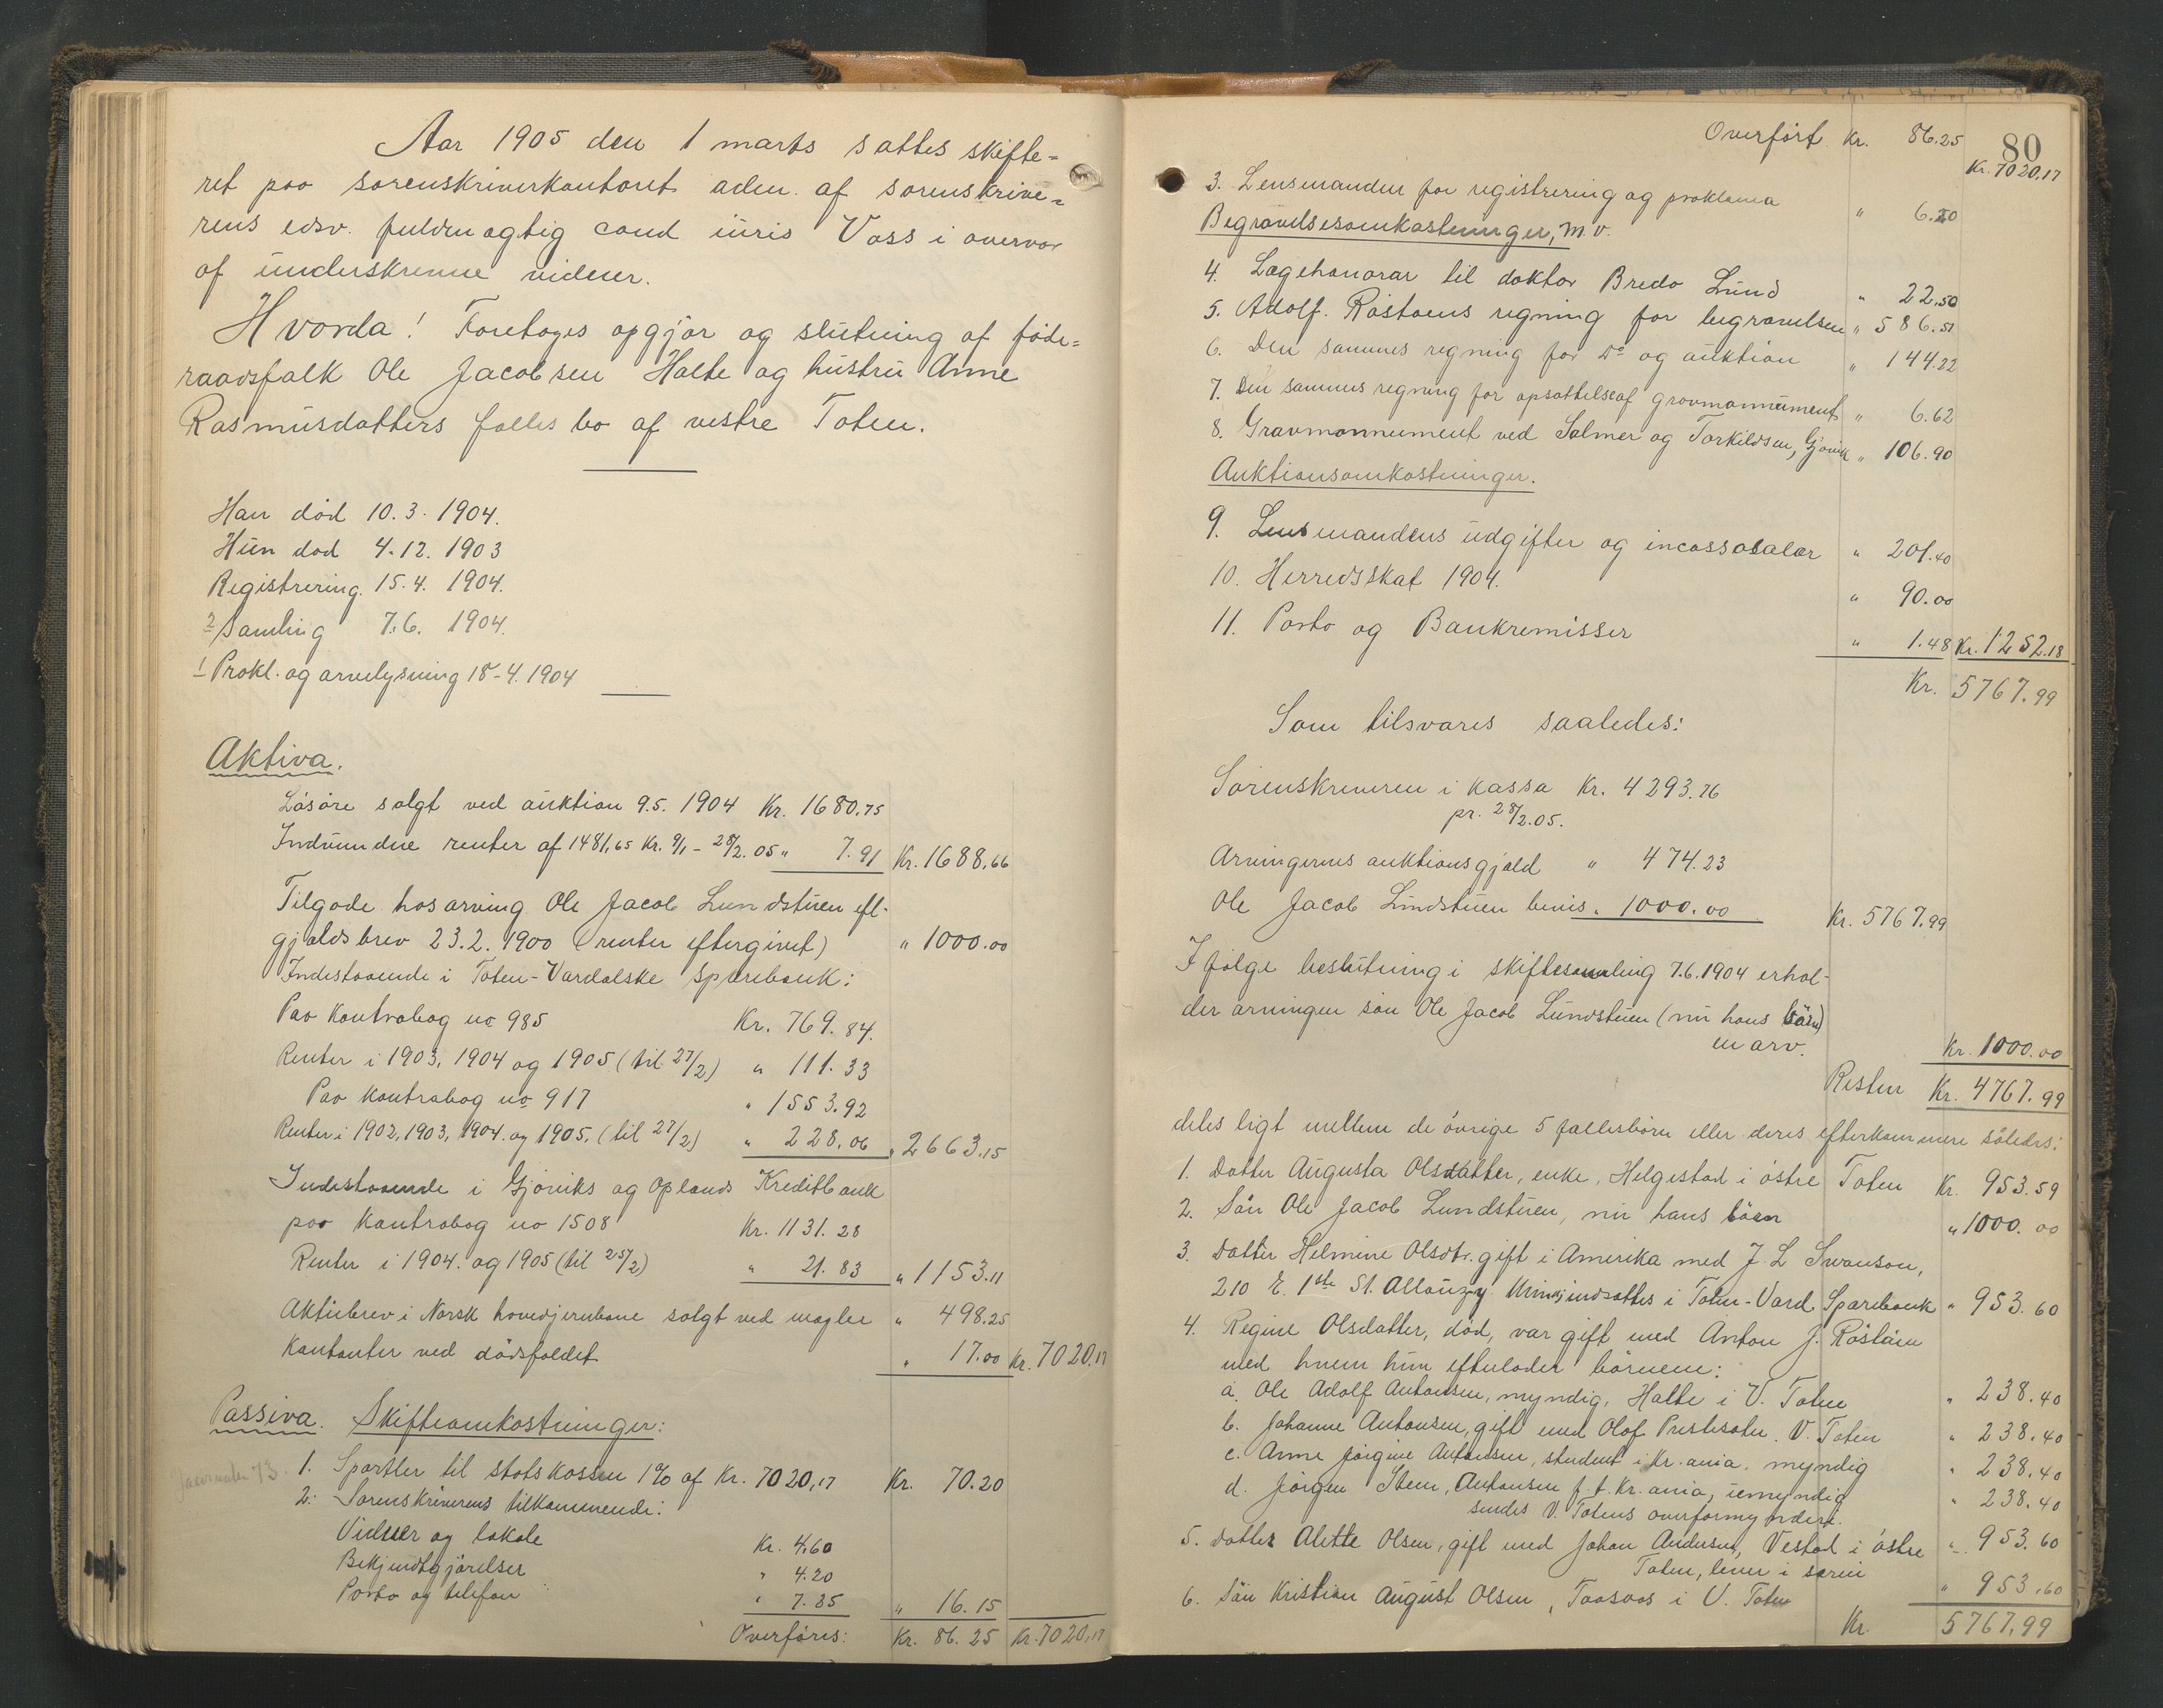 Aar 1905 den 1 marts sattes skifte-
ret paa sorenskriverkontoret adm. af sorenskrive-
rens edsv. fuldmægtig cand juris Voss i overvær
af underskrevne vidner.
Hvorda! Foretoges opgjør og slutning af føde-
raadsfolk Ole Jacobsen Halte og hustru Anne
Rasmusdatters fælles bo af vestre Toten.
Han død 10.3. 1904.
Hun død 4.12. 1903
Registrering 15.4. 1904.
2 Samling 7.6. 1904.
1 Prokl. og arvelysning 18-4.1904
Aktiva.
Løsøre solgt ved auktion 9.5. 1904 Kr. 1680.75
Indvundne renter af 1481,65 Kr. 9/1 - 28/2. 05 " 7.91 Kr. 1688,66
Tilgode hos arving Ole Jacob Lundstuen efl.
gjældsbrev 23.2. 1900 (renter eftergivet) " 1000.00
Indestaaende i Toten-Vardalske Sparebank:
Paa Kontrabog no 985 Kr. 769.84.
Renter i 1903, 1904 og 1905 (til 27/2) " 111.33
Paa kontrabog no 917 " 1553.92
Renter i 1902, 1903, 1904 og 1905. (til 27/2) " 228.06 " 2663.15
Indestaaende i Gjøviks og Oplands Kreditbank
paa Kontrabog no 1508 Kr. 1131.28
Renter i 1904. og 1905 (til 25/2) " 21.83 " 1153.11
Aktiebrev i Norsk hovedjernbane solgt ved mægler " 498.25
Kontanter ved dødsfaldet " 17.00 Kr. 7020,17
Passiva. Skifteomkostninger:
1. Sportler til statskassen 1% af Kr. 7020,17 Kr. 70.20
2. Sorenskriverens tilkommende:
Vidner og lokale Kr. 4.60
Bekjendtgjørelser " 4.20
Porto og telefon " 7.35 " 16.15
Overføres: Kr. 86.25 Kr. 7020,17
80
Overført Kr. 86.25 Kr. 7020,17
3. Lensmanden for registrering og proklama " 6.20
Begravelsesomkostninger, m.v.
4. Lægehonorar til doktor Bredo Lund " 22.50
5. Adolf. Røstøens regning for begravelsen " 586.51
6. Den sammes regning for Do og auktion " 144.22
7. Den sammes regning for opsættelse af gravmonnument " 6.62
8. Gravmonnument ved Salmer og Torkildsen, Gjøvik " 106.90
Auktionsomkostninger.
9. Lensmandens udgifter og incassosalær " 201.40
10. Herredsskat 1904. " 90.00
11. Porto og Bankremisser " 1.48 Kr. 1252.18
Kr. 5767.99
Som tilsvares saaledes:
Sorenskriveren i kassa Kr. 4293.76
pr. 28/2.05.
Arvingernes auktionsgjæld " 474.23
Ole Jacob Lundstuen bevis " 1000.00 Kr. 5767.99
Ifølge beslutning i skiftesamling 7.6.1904 erhol-
der arvingen søn Ole Jacob Lundstuen (nu hans børn)
en arv. Kr. 1000.00
Resten Kr. 4767.99
deles ligt mellem de øvrige 5 fællesbørn eller deres efterkommere således:
1. Datter Augusta Olsdatter, enke, Helgestad i østre Toten Kr. 953.59
2. Søn Ole Jacob Lundstuen, nu hans børn " 1000.00
3. Datter Helmine Olsdtr. gift i Amerika med J. L Swanson,
210 E. 1ste St. indsættes i Toten-Vard. Sparebank " 953.60
4. Regine Olsdatter, død, var gift med Anton J. Røstøen
med hvem hun efterlader børnene:
a. Ole Adolf Antonsen, myndig, Halte i V. Toten " 238.40
b. Johanne Antonsen, gift med Olof Prestesater. V. Toten " 238.40
c. Anne Jørgine Antonsen, student i Kr.ania. myndig " 238.40
d. Jørgen Sten, Antonsen f. t. Kr.ania, umyndig " 238.40
sendes V. Totens overformynderi.
5. Datter Alette Olsen, gift med Johan Andersen, Vestad i østre " 953.60
Toten, lever i særeie
6. Søn Kristian August Olsen, Taasvas i V. Toten " 953.60
Kr. 5767,99